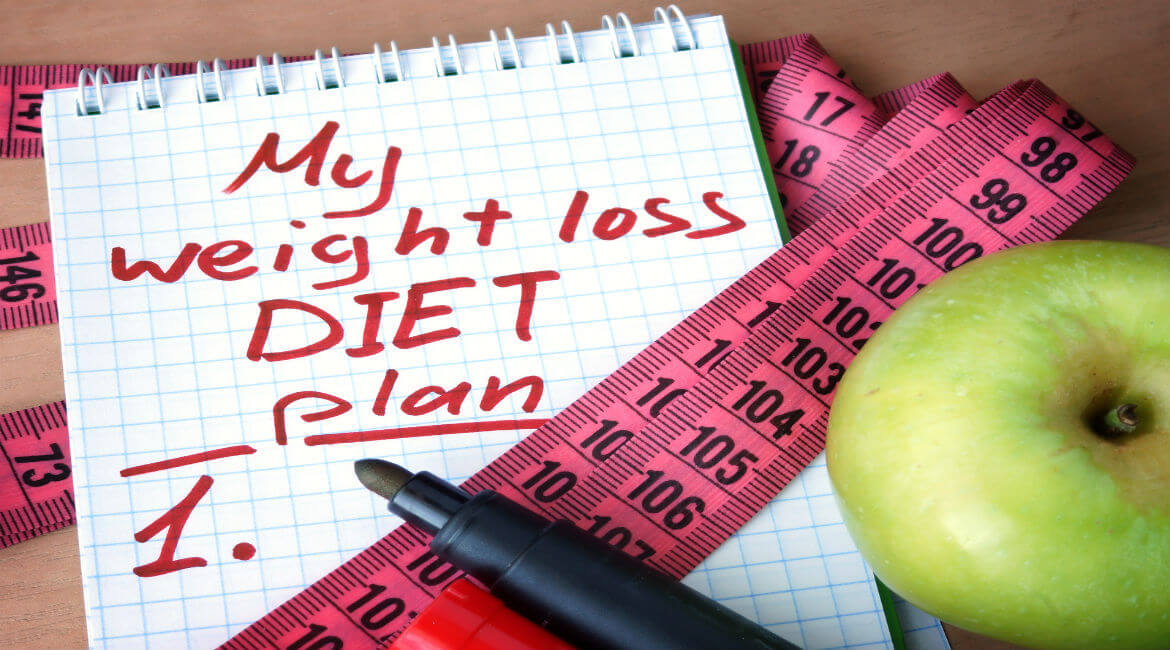 My
weight loss
DIET
plan
1.
147
146
73
17
18
97
98
99
100
101
102
103
104
105
106
107